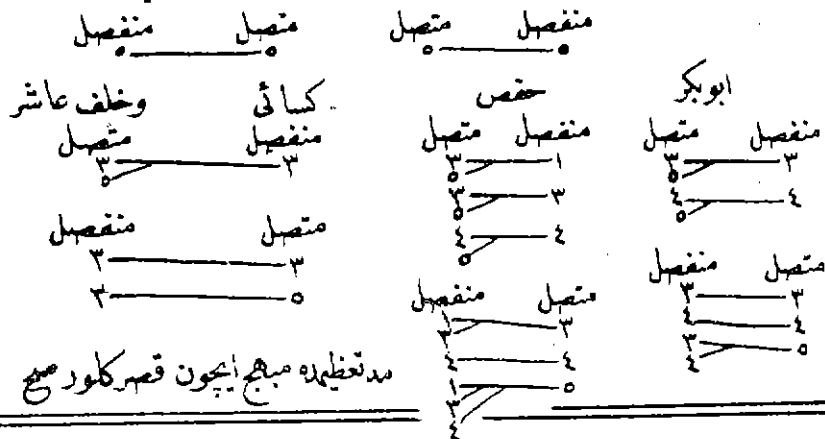 متصل منفصل
٥ ٥
منفصل متصل
٥ ٥
ابوبكر
منفصل متصل
٣ ٣
٥
٤ ٤
٥
متصل منفصل
٣ ٣
٤ ٤
٥ ٣
٤
حفص
منفصل متصل
١ ٣
٥
٣ ٣
٥
٤ ٤
٥
متصل منفصل
٣ ١
٣
٤ ٤
٥ ١
٣
٤
كسائى وخلف عاشر
منفصل متصل
٣ ٣
٥
متصل منفصل
٣ ٣
٥ ٣
مد تعظيمده مبهج ايچون قصر كلور صح